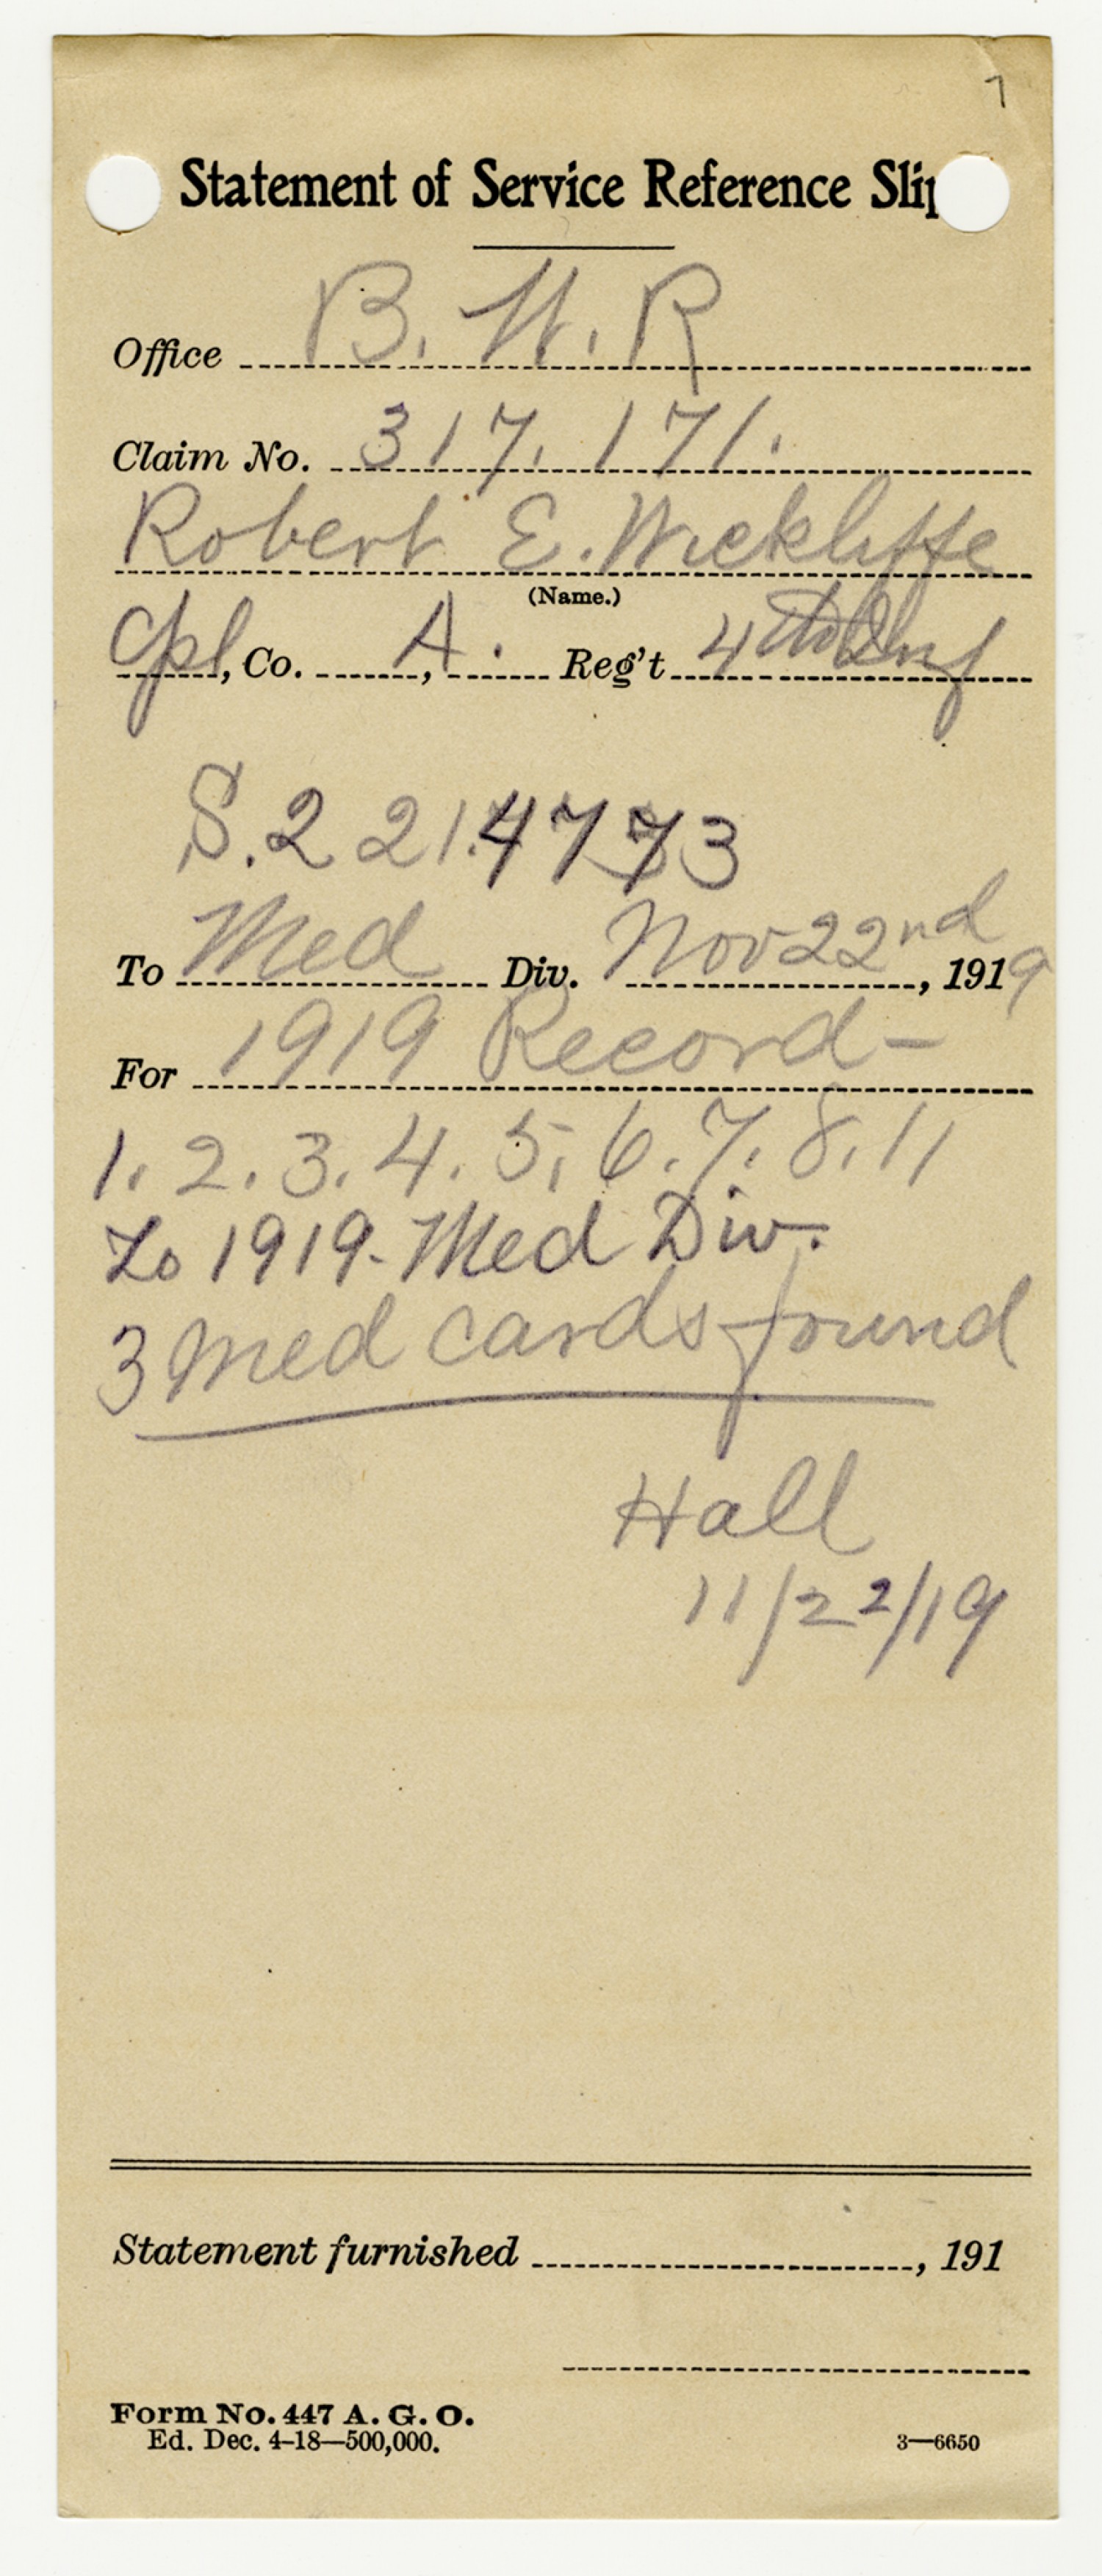 7
Statement of Service Reference Sli
Office B. W. R
Claim No. 317.171.
Robert E. Wickliffe
(Name.)
Cpl, Co. A. Reg't 4th Inf
S. 221.4773
To Med Div. Nov 22nd, 1919
For 1919 Record-
1. 2. 3. 4. 5, 6. 7. 8. 11
To 1919- Med Div.
3 Med cards found
Hall
11/22/19
Statement furnished , 191
Form No. 447 A. G. O.
Ed. Dec. 4-18—500,000.
3—6650